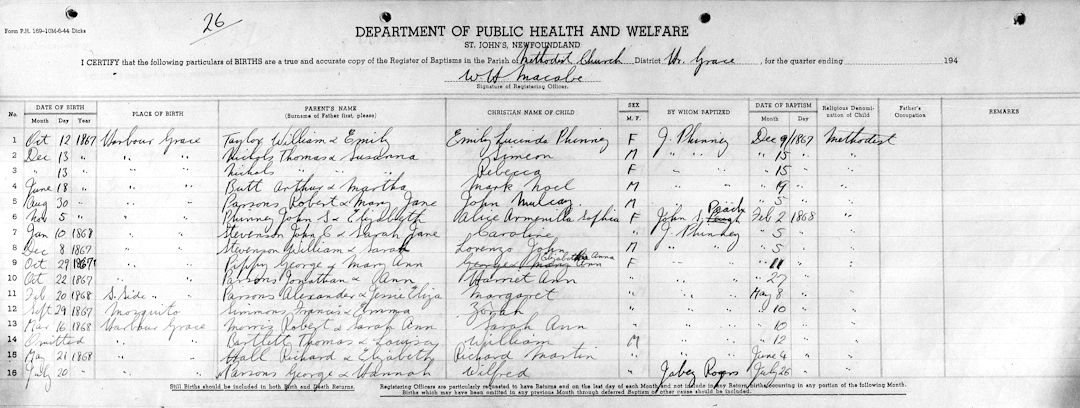 26
Form P.H. 169-10M-6-44 Dicks
DEPARTMENT OF PUBLIC HEALTH AND WELFARE
ST. JOHN'S, NEWFOUNDLAND
I CERTIFY that the following particulars of BIRTHS are a true and accurate copy of the Register of Baptisms in the Parish of Methodist Church District Hr. Grace, for the quarter ending 194
W H Macabe
Signature of Registering Officer.
No. DATE OF BIRTH PLACE OF BIRTH PARENT'S NAME CHRISTIAN NAME OF CHILD SEX BY WHOM BAPTIZED DATE OF BAPTISM Religious Denomi- Father's REMARKS
Month Day Year (Surname of Father first, please) M. F. Month Day Year nation of Child Occupation
1 Oct 12 1867 Harbour Grace Taylor William & Emily Emily Lucinda Phinney F J. Phinney Dec 9 1867 Methodist
2 Dec 13 " " " Nichols Thomas & Susanna Simeon M " " " 15 "
3 " 13 " " " Nichols " " " Rebecca F " " " 15 "
4 June 18 " " " Butt Arthur & Martha Mark Noel M " " " 19 "
5 Aug 30 " " " Parsons Robert & Mary Jane John Mulcay M " " " 5 "
6 Nov 5 " " " Phinney John S & Elizabeth Alice Armenilla Sophia F John S. Feb 2 1868 "
7 Jan 10 1868 " " Stevenson John C & Sarah Jane Caroline " J Phinney " 5 "
8 Dec 8 1867 " " Stevenson William & Sarah Lorenzo John M " " " 5 "
9 Oct 29 1867 " " Pippy George & Mary Ann George & Mary Ann Elizabeth Anna F " " " 11 "
10 Oct 22 1867 " " Parsons Jonathan & Ann Harriet Ann " " " " 27 "
11 Feb 20 1868 S. Side " Parsons Alexander & Jessie Eliza Margaret " " " May 8 "
12 Sept 29 1867 Mosquito Simmons Francis & Emma Zorah " " " " 10 "
13 Mar 16 1868 Harbour Grace Morris Robert & Sarah Ann Sarah Ann " " " " 10 "
14 Omitted " " Bartlett Thomas & Louisa William M " " " 12 "
15 May 21 1868 " " Hall Richard & Elizabeth Richard Martin " " " June 4 "
16 July 20 " " " Parsons George & Hannah Wilfred " Jabez Rogers July 26 "
Still Births should be included in both Birth and Death Returns.
Registering Officers are particularly requested to have Returns end on the last day of each Month and not include in any Return births occurring in any portion of the following Month.
Births which may have been omitted in any previous Month through deferred Baptism or other cause should be included.